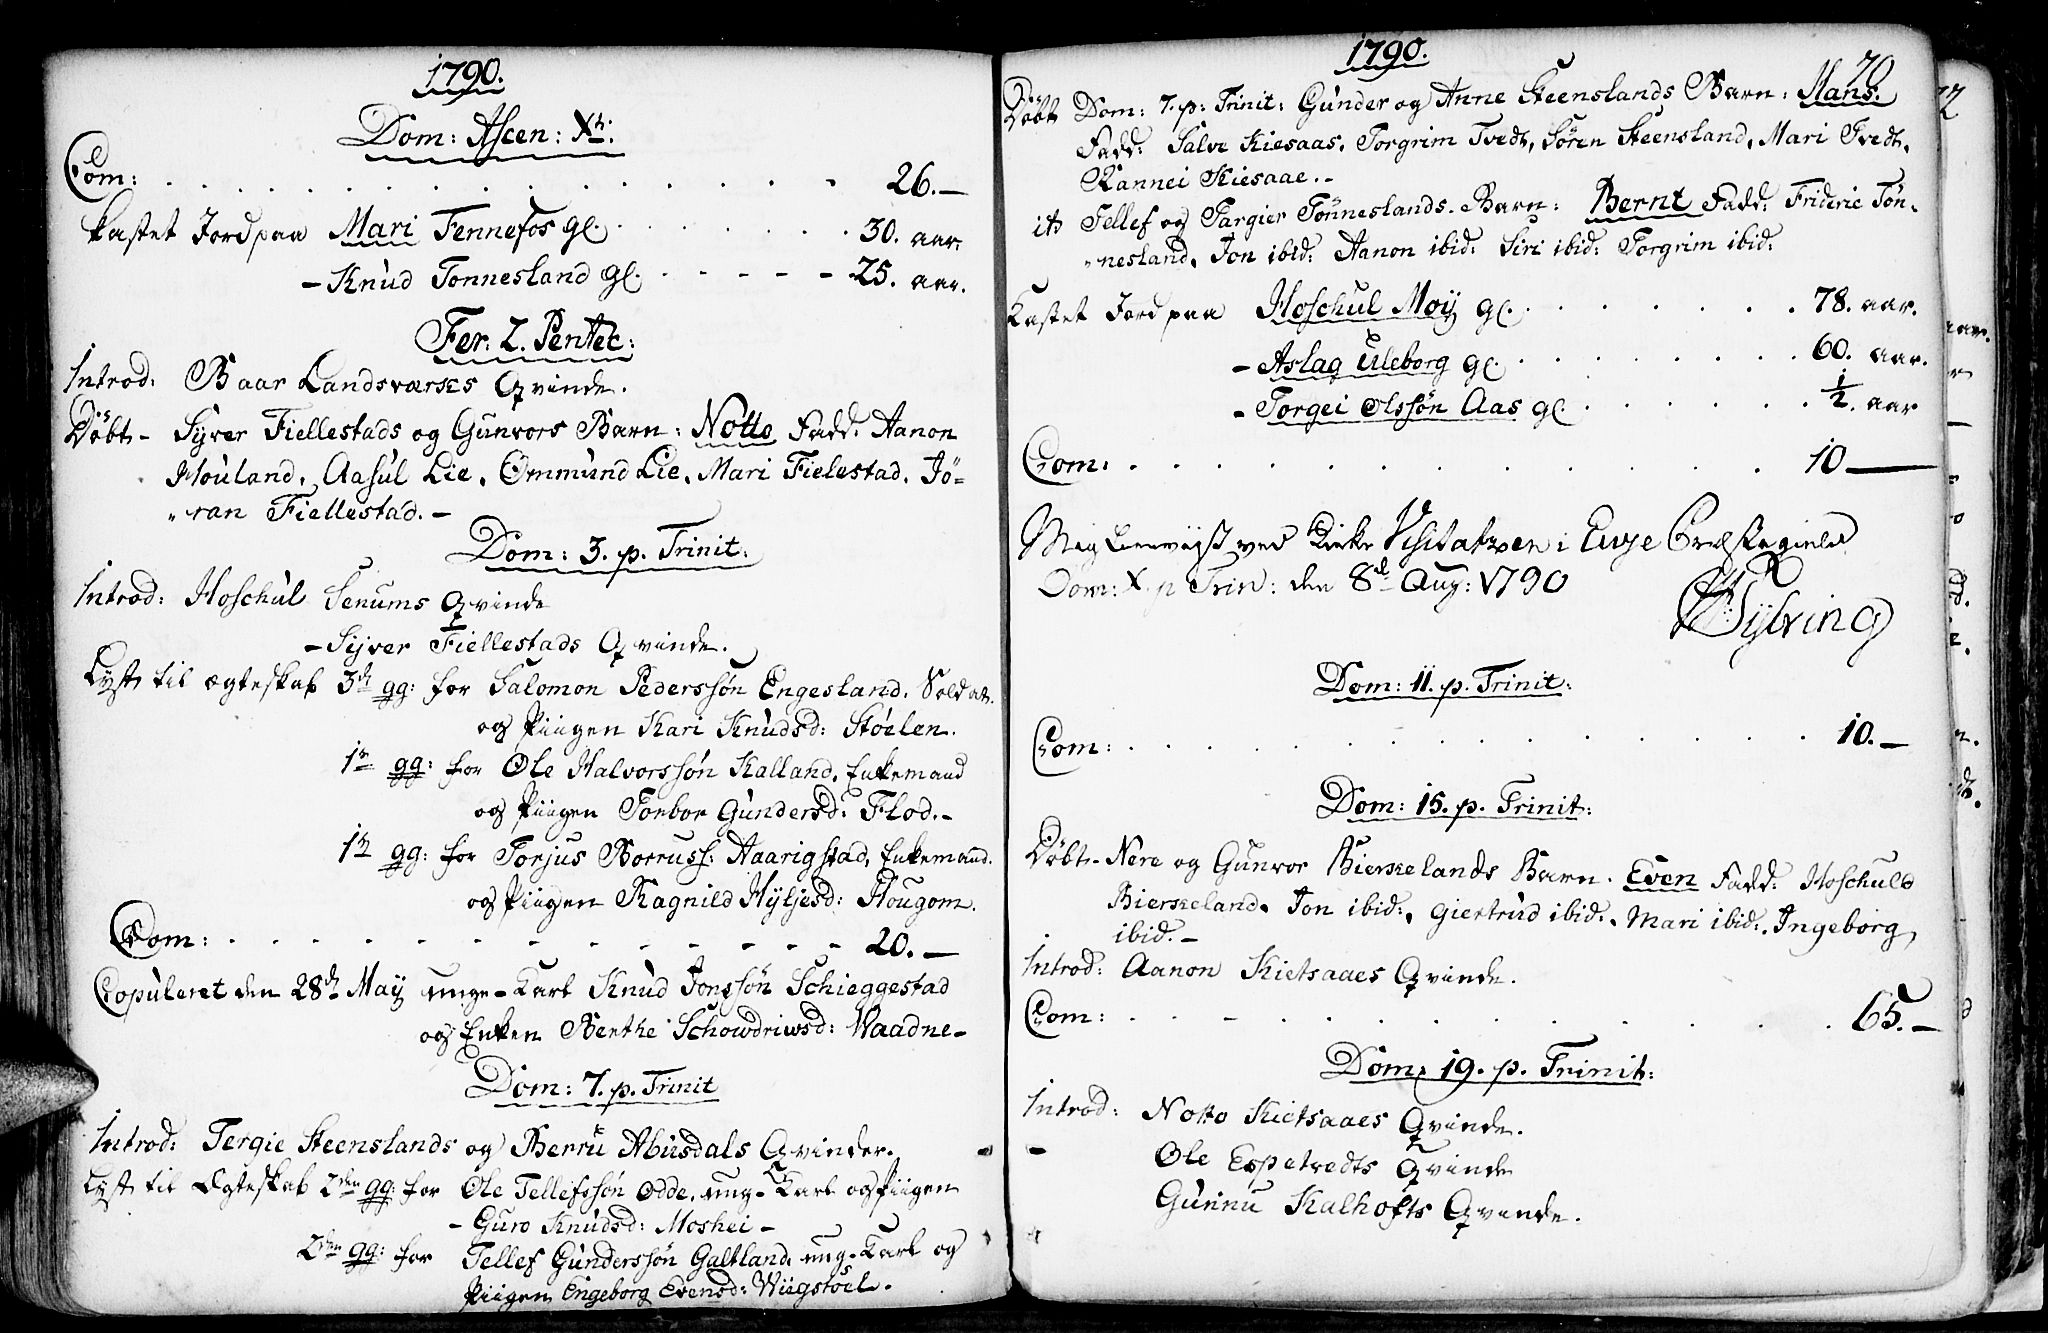 1790.
Dom: Ascen: Xti:
Com: . . . . . . . . . . . . . 26.—
Kastet Jord paa Mari Fennefos gl. . . . . . 30. aar.
— Knud Tonnesland gl. . . . . 25. aar.
Fer: 2. Pentec:
Introd: Baar Landsværks Qvinde.
Døbt— Syver Fiellestads og Gunvors Barn: Notto Fadd: Aanon
Houland, Aasul Lie, Ommund Lie, Mari Fielestad, Jö=
„ran Fiellestad.—
Dom: 3. p. Trinit:
Introd: Hoschul Senums Qvinde
— Syver Fiellestads Qvinde.
Lyst til ægteskab 3die gg: for Salomon Pederssøn Engesland, Soldat.
og Piigen Kari Knudsd: Støelen.
1te gg: for Ole Halvorssøn Kalland, Enkemand
og Piigen Torbor Gundersd: Flod.—
1te gg: for Torjus Borruss: Haarigstad, Enkemand.
og Piigen Ragnild Hyljesd: Hougom.
Com: . . . . . . . . . . . 20.—
Copuleret den 28de May unge-Karl Knud Jonssøn Schieggestad
og Enken Berthe Schowdriwsd: Vaadne—
Dom: 7. p. Trinit
Introd: Tergie Steenslands og Berru Abusdals Qvinder.
Lyst til Ægteskab 2den gg: for Ole Tellefssøn Odde, ung-Karl og Piigen
— Guro Knudsd: Moshei —
2den gg: for Tellef Gunderssøn Galtland, ung-Karl og
Piigen Engeborg Evensd: Wiigstöel.
1790.
70
Døbt Dom: 7. p: Trinit: Gunder og Anne Steenslands Barn: Hans.
Fadd: Salve Kiesaas, Torgrim Tvedt, Søren Steensland, Mari Tvedt,
Rannei Kiesaae.—
it: Tellef og Targier Tönneslands Barn: Bernt Fadd: Friderie Tön-
„nesland, Jon ibid: Aanon ibid: Siri ibid: Torgrim ibid:
Kastet Jord paa Hoschul Moij gl. . . . . . . 78. aar.
— Aslag Uleborg gl. . . . . . . 60. aar.
— Torgei Olssøn Aas gl. . . . . . 1/2. aar
Com: . . . . . . . . . . . 10—
Dom: X p Trin: den 8de Aug: 1790
Dom: 11. p. Trinit:
Com: . . . . . . . . . . . . 10.—
Dom: 15. p. Trinit:
Døbt— Nere og Gunvor Bierkelands Barn. Even Fadd: Hoschuld
Bierkeland, Jon ibid:, Giertrud ibid:, Mari ibid:, Ingeborg
ibid.—
Introd: Aanon Kietsaaes Qvinde.
Com: . . . . . . . . . . . . 65.—
Dom: 19. p. Trinit:
Introd: Notto Kietsaaes Qvinde.
— Ole Espetvedts Qvinde
Gunnu Kalhofts Qvinde.